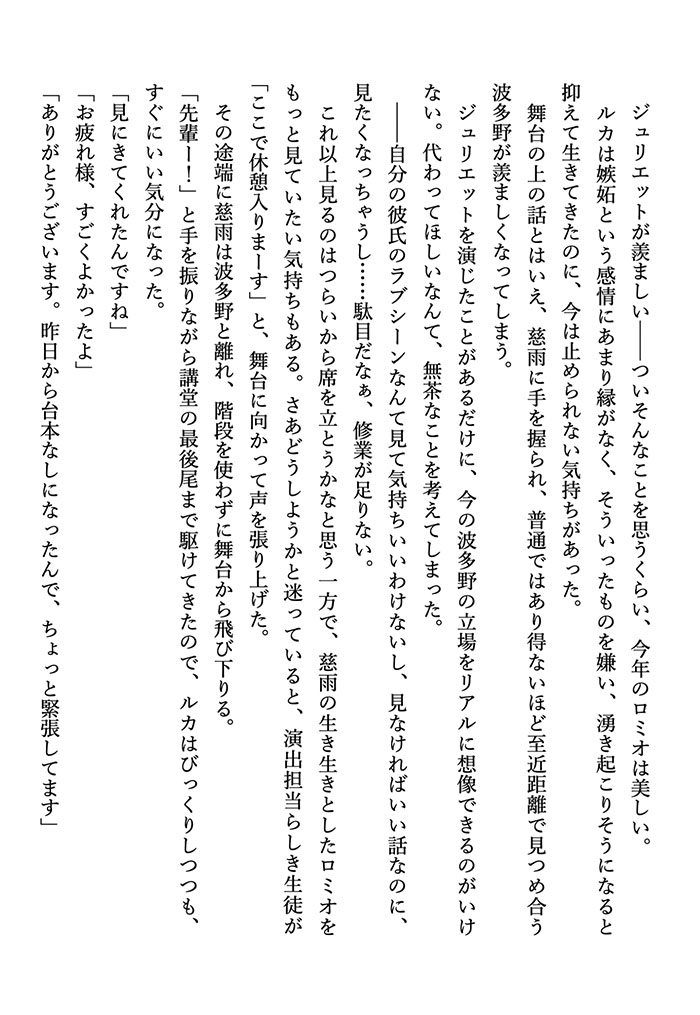 ジュリエットが羨ましい――ついそんなことを思うくらい、今年のロミオは美しい。
　ルカは嫉妬という感情にあまり縁がなく、そういったものを嫌い、湧き起こりそうになると
抑えて生きてきたのに、今は止められない気持ちがあった。
　舞台の上の話とはいえ、慈雨に手を握られ、普通ではあり得ないほど至近距離で見つめ合う
波多野が羨ましくなってしまう。
　ジュリエットを演じたことがあるだけに、今の波多野の立場をリアルに想像できるのがいけ
ない。代わってほしいなんて、無茶なことを考えてしまった。
　――自分の彼氏のラブシーンなんて見て気持ちいいわけないし、見なければいい話なのに、
見たくなっちゃうし……駄目だなぁ、修業が足りない。
　これ以上見るのはつらいから席を立とうかなと思う一方で、慈雨の生き生きとしたロミオを
もっと見ていたい気持ちもある。さあどうしようかと迷っていると、演出担当らしき生徒が
「ここで休憩入りまーす」と、舞台に向かって声を張り上げた。
　その途端に慈雨は波多野と離れ、階段を使わずに舞台から飛び下りる。
「先輩ー！」と手を振りながら講堂の最後尾まで駆けてきたので、ルカはびっくりしつつも、
すぐにいい気分になった。
「見にきてくれたんですね」
「お疲れ様、すごくよかったよ」
「ありがとうございます。昨日から台本なしになったんで、ちょっと緊張してます」